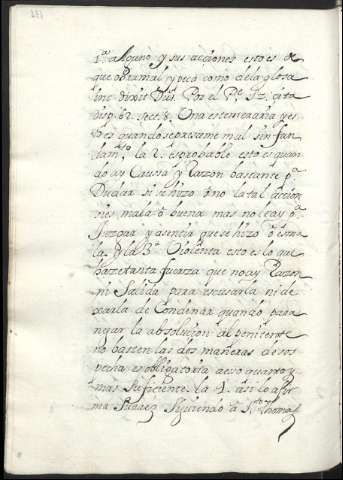 1.ª alguno y sus acciones esto es
que obra mal y peca como de la glosa
hic dixit Dus. Por el P.e Gz. cita
disp. 62. sect. 8. Una es temeraria y es
to es quando se presume mal sin fun
dam.to la 2.ª es probable esto es quan
do ay Causa y Razon bastante p.ª
Dudar si se hizo o no la tal accion
si es mala o buena mas no la ay p.ª
Juzgar y asentir que se hizo o es ma
la. Y la 3.ª Violenta esto es lo que
haze tanta fuerza que no ay Razon
ni Salida para escusarla ni de
xarla de Condenar quando para
negar la absolucion al penitente
no basten las dos maneras de sos
pecha es obligatoria
mas suficiente la 1. asi lo afir
ma Suarez Siguiendo a S.to Thomas